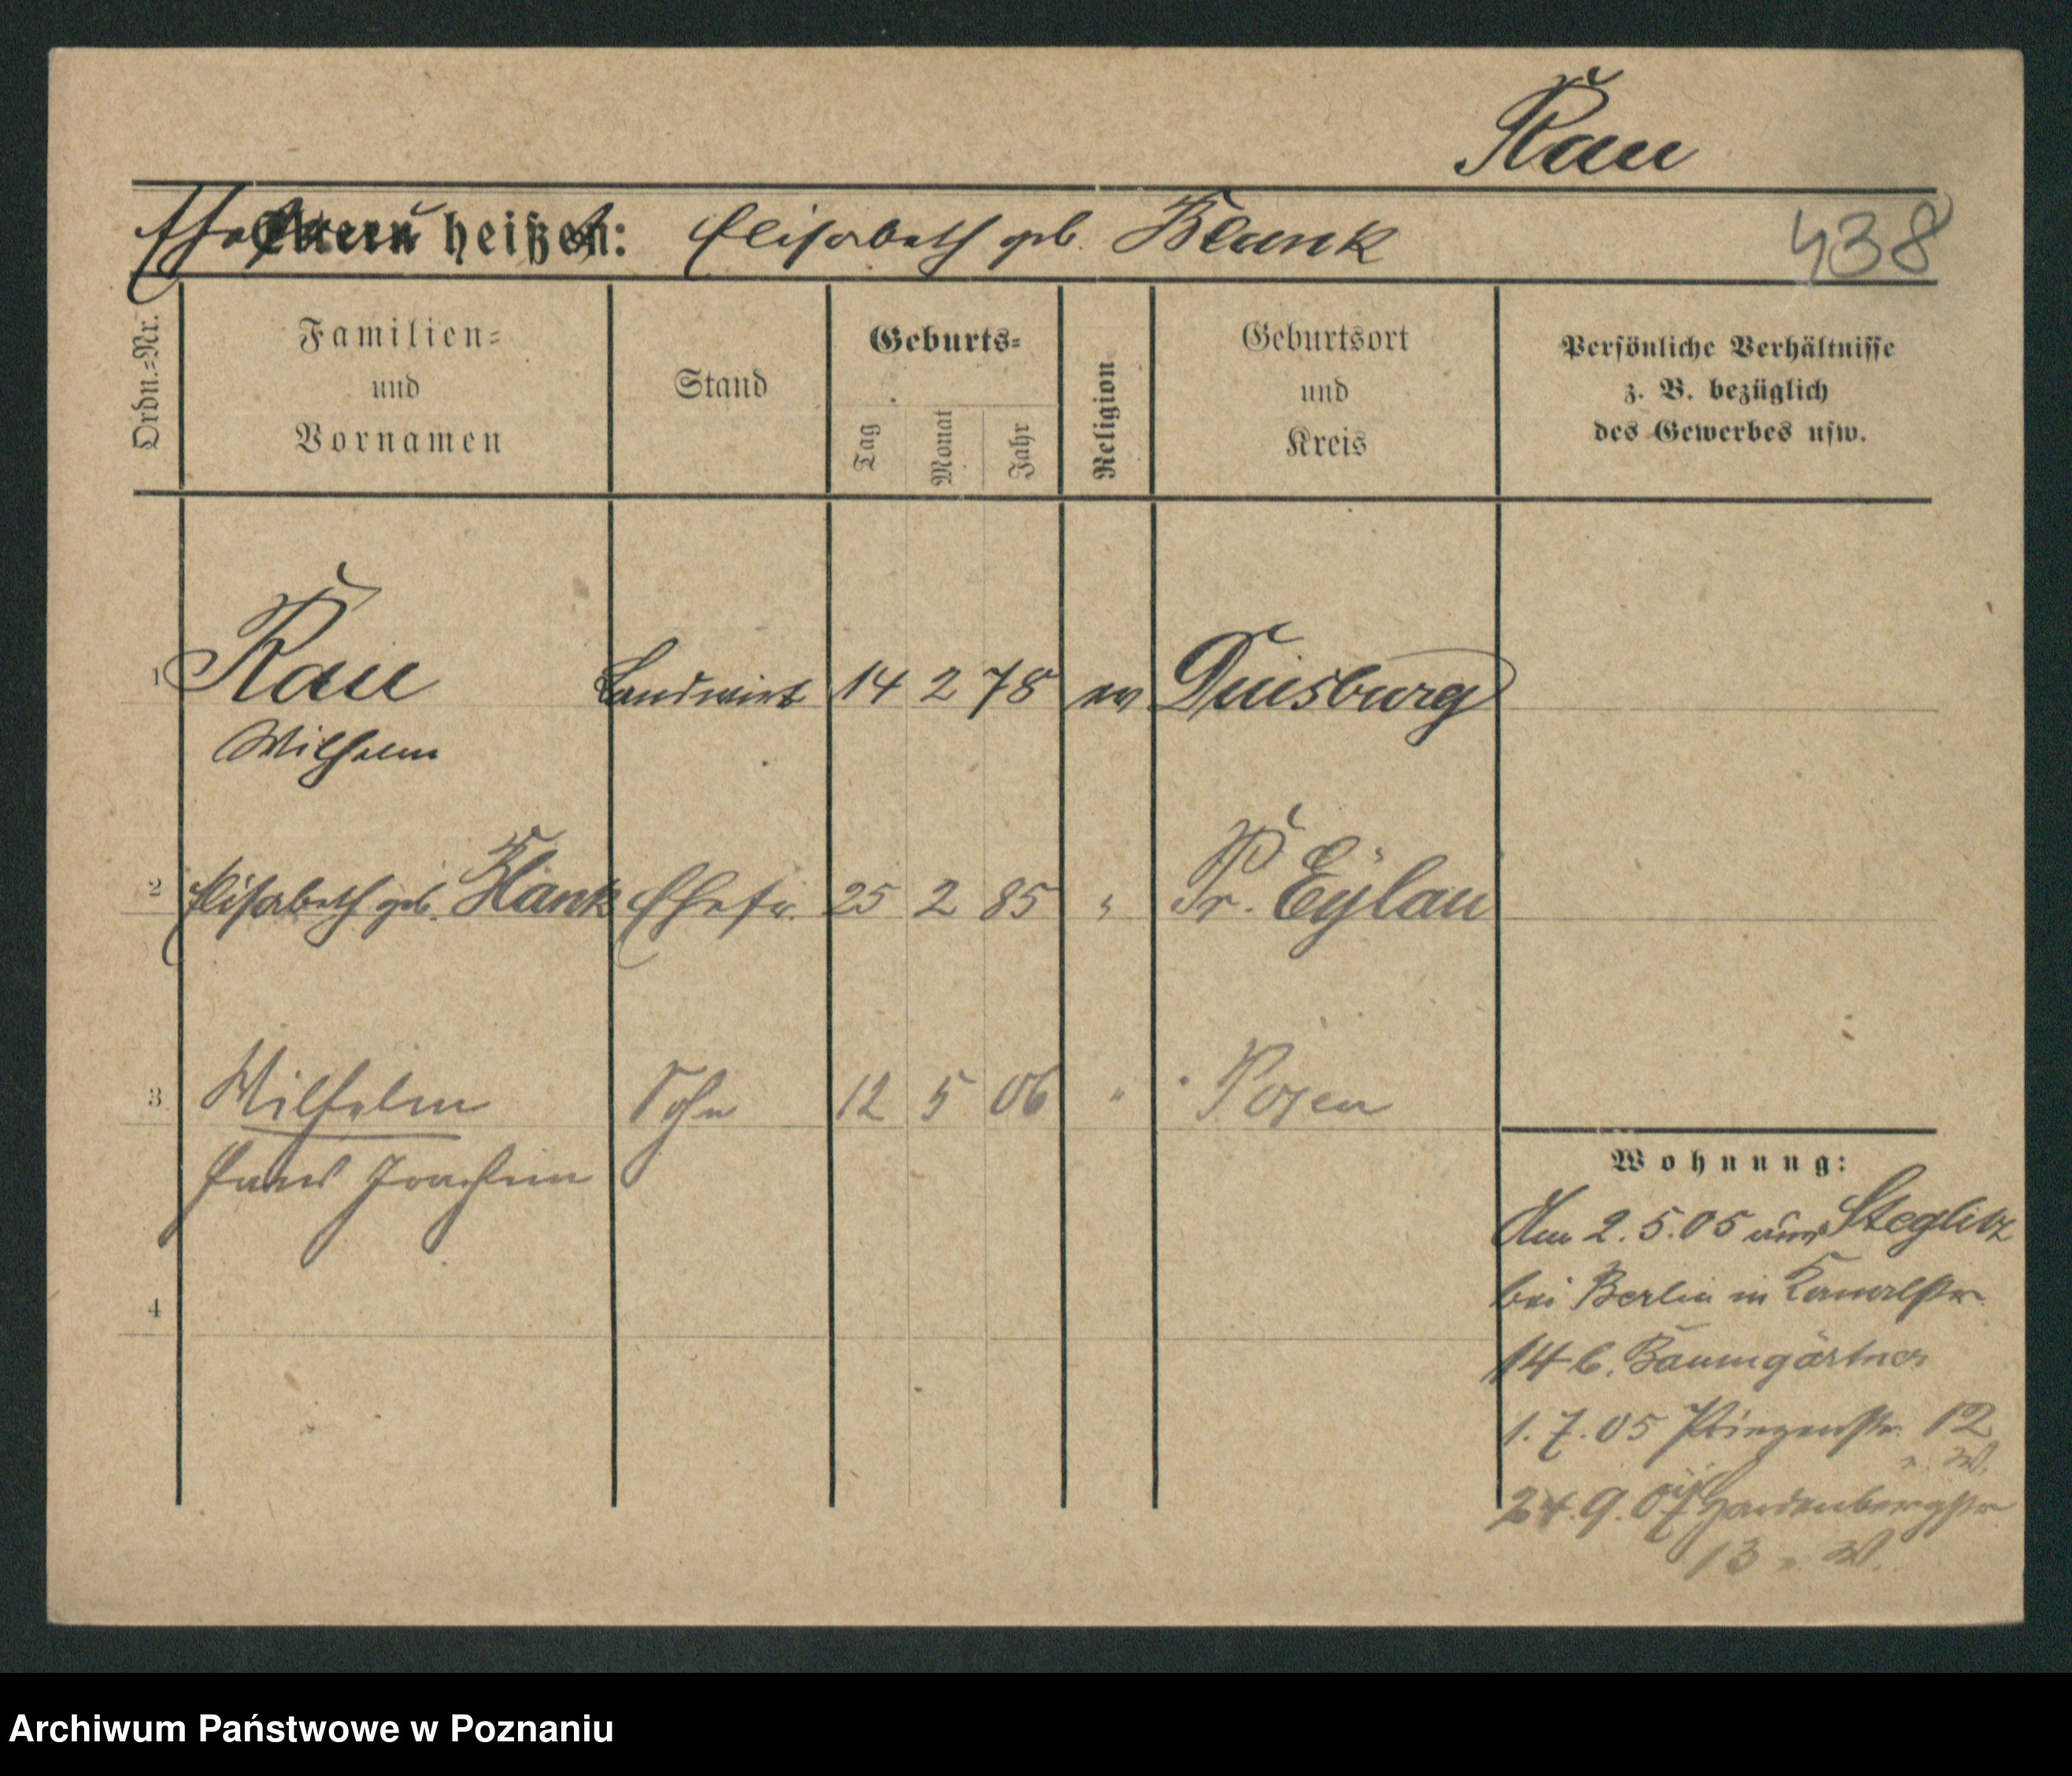 Rau
Ehefrau heißt: Elisabeth geb. Blank
438
Ordn.=Nr.
Familien=
und
Vornamen
Stand
Geburts=
Tag
Monat
Jahr
Religion
Geburtsort
und
Kreis
Persönliche Verhältnisse
z. B. bezüglich
des Gewerbes usw.
1 Rau Landwirt 14 2 78 ev Duisburg
Wilhelm
2 Elisabeth geb. Blank Ehefr. 25 2 85 " Pr. Eylau
3 Wilhelm Sohn 12 5 06 " Posen
Hans Joachim
4
Wohnung:
Am 2.5.05 aus Steglitz
bei Berlin in Kanalstr.
14 b. Baumgärtner
1.7.05 Prinzenstr. 12
W.
24.9.07 Hardenbergstr
13 W.
Archiwum Państwowe w Poznaniu